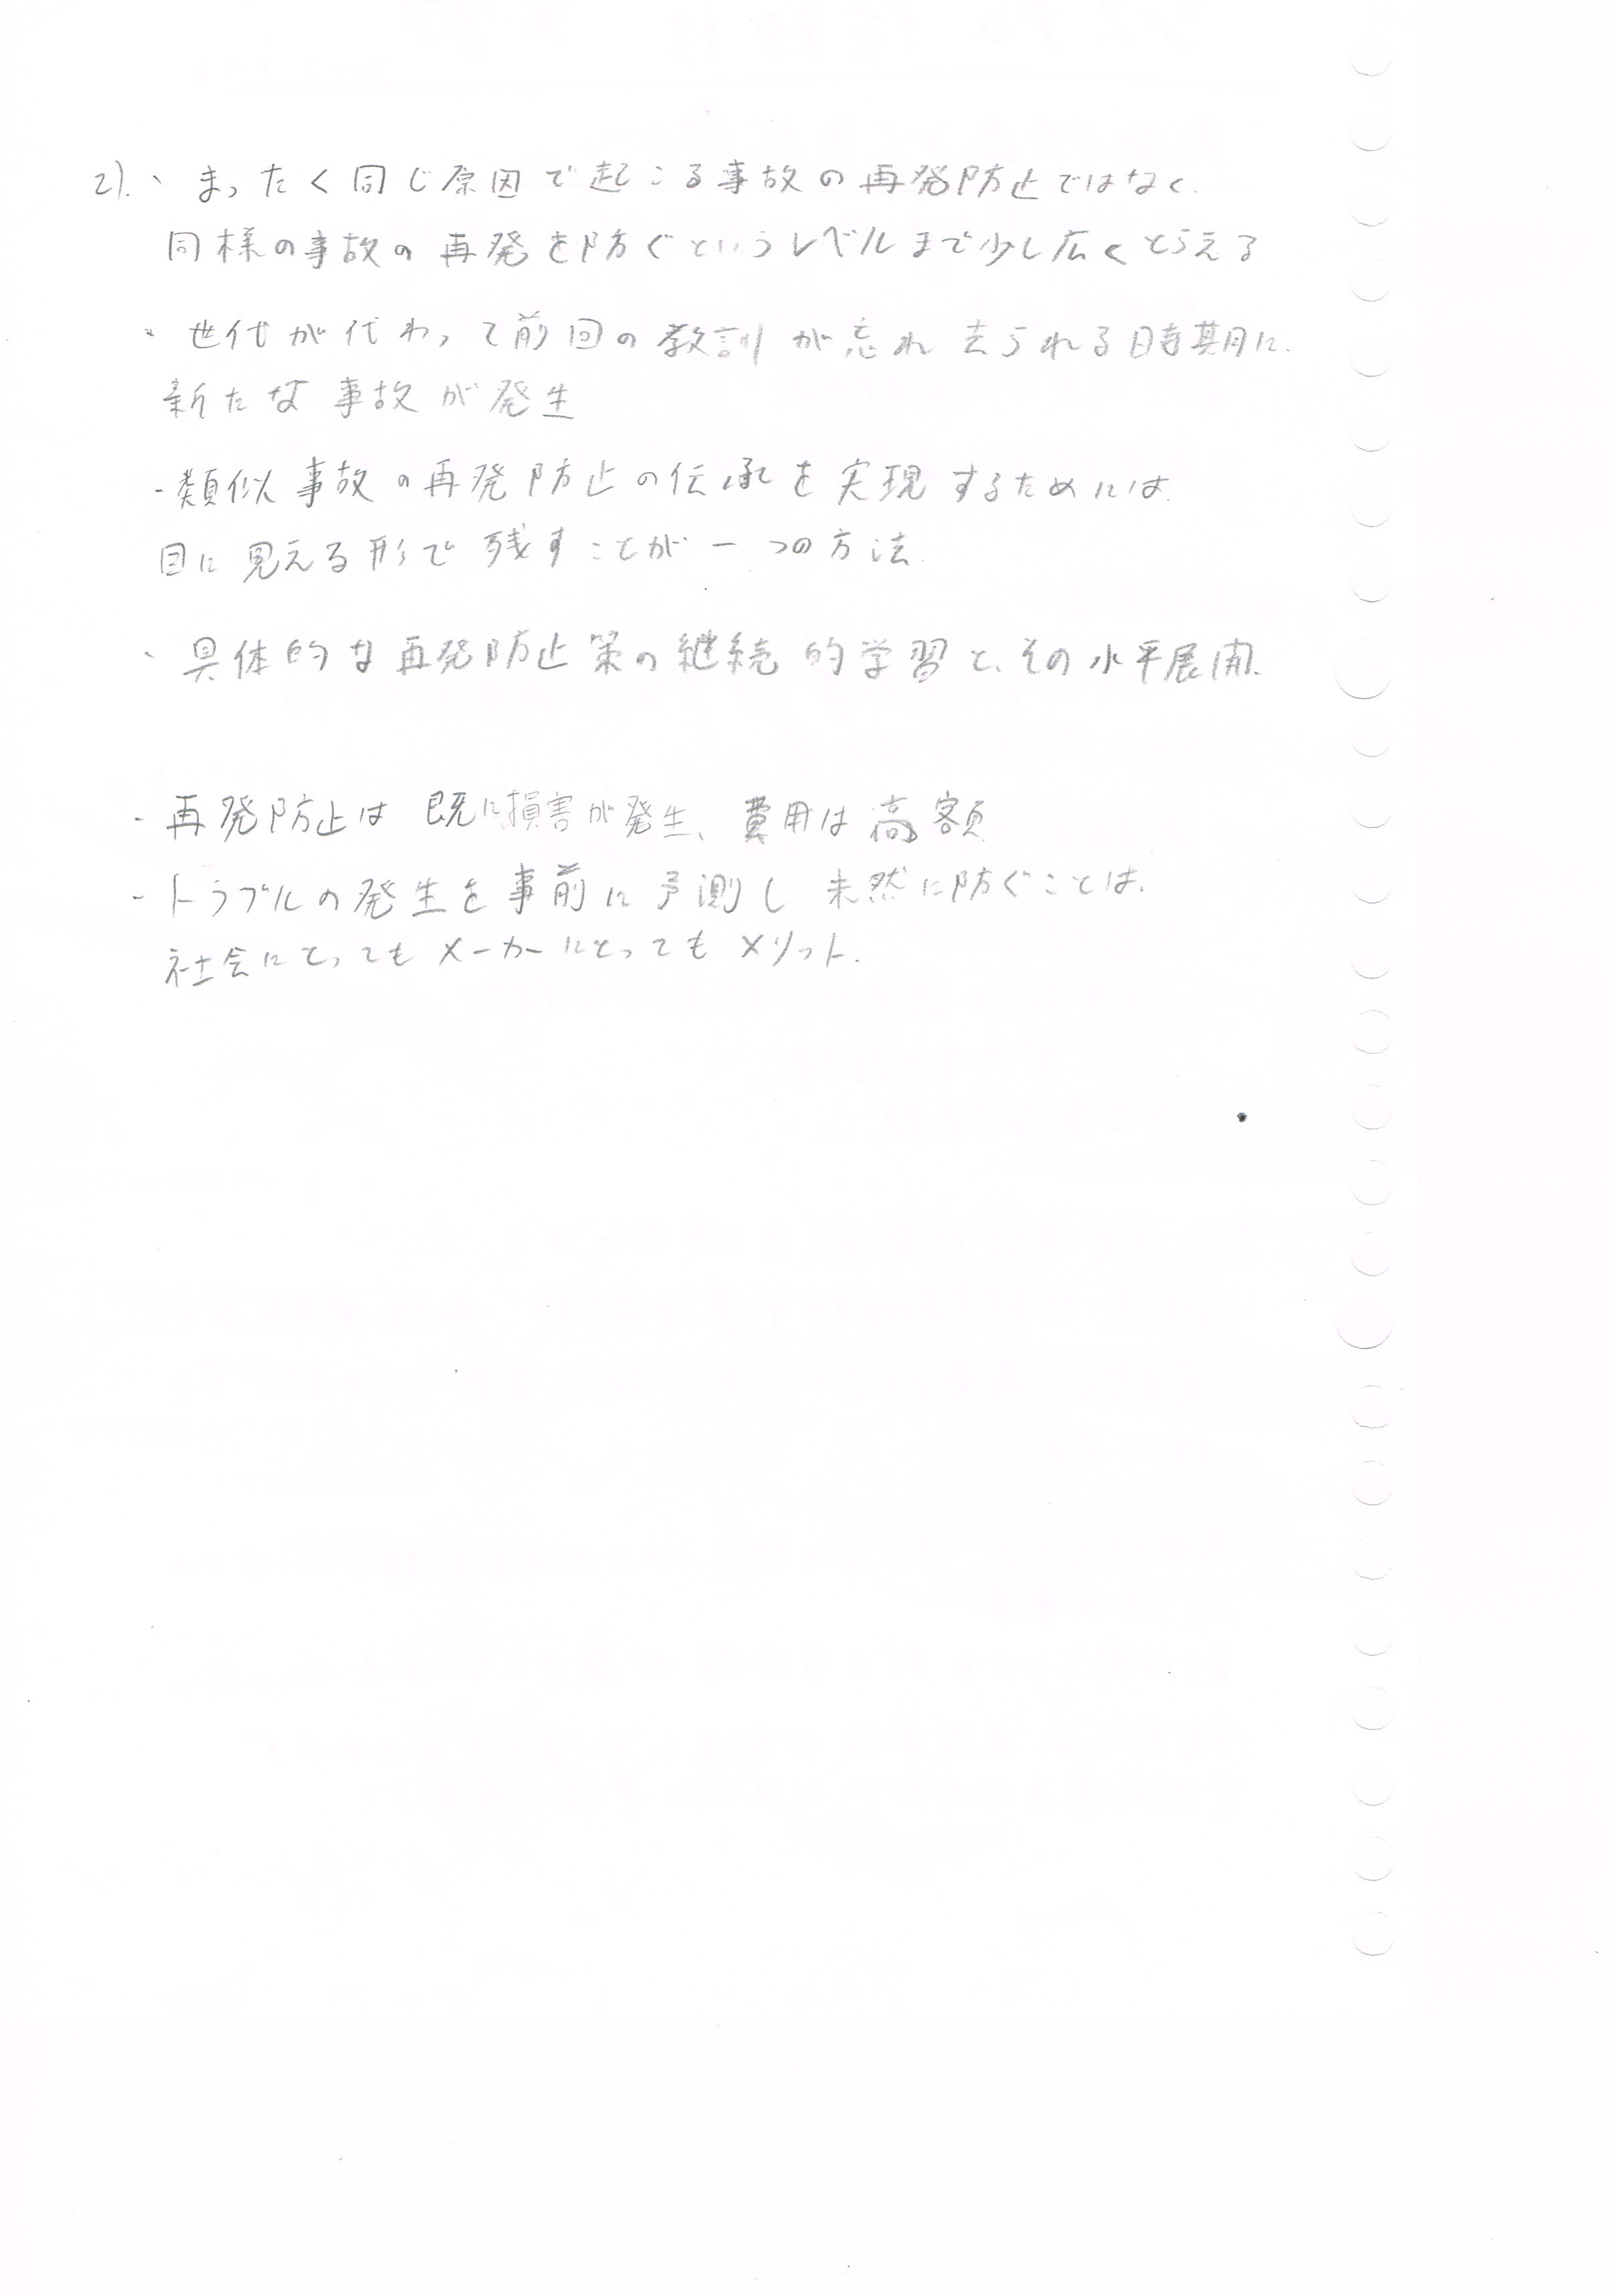 2).・まったく同じ原因で起こる事故の再発防止ではなく、
同様の事故の再発を防ぐというレベルまで少し広くとらえる
・世代が代わって前回の教訓が忘れ去られる時期に、
新たな事故が発生
・類似事故の再発防止の伝承を実現するためには、
目に見える形で残すことが一つの方法.
・具体的な再発防止策の継続的学習と、その水平展開.
・再発防止は既に損害が発生、費用は高額
・トラブルの発生を事前に予測し未然に防ぐことは、
社会にとってもメーカーにとってもメリット.